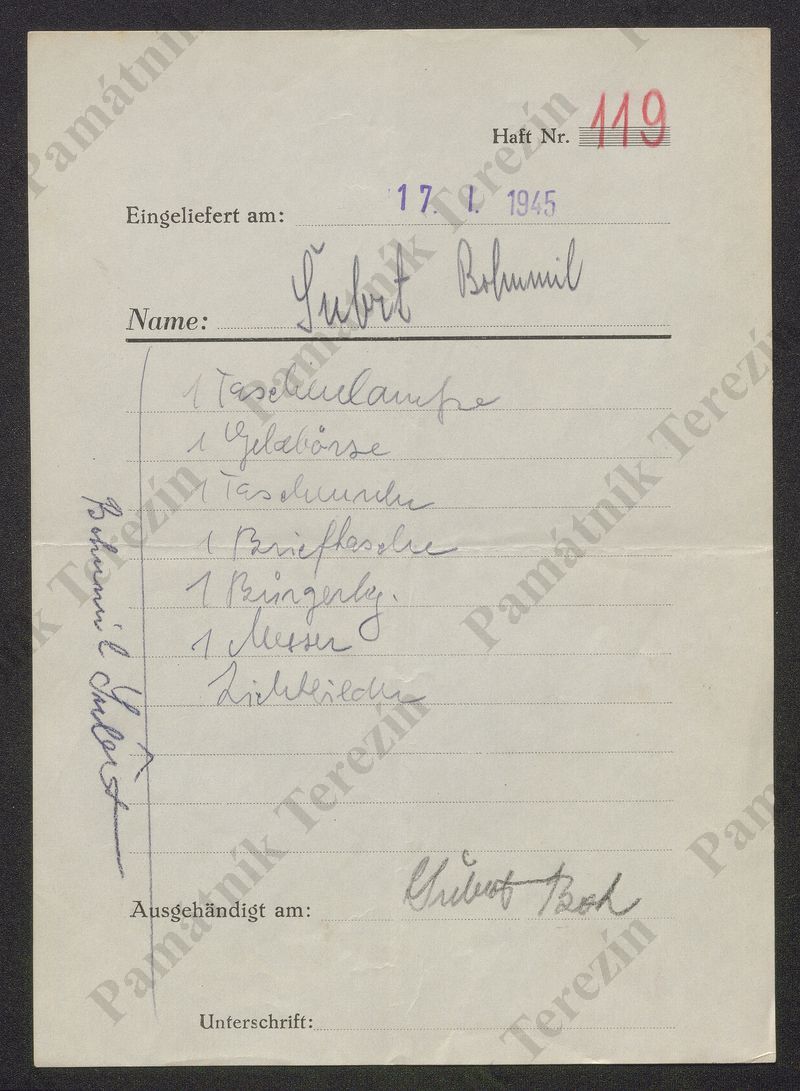 Haft Nr. 119
Eingeliefert am: 17. I. 1945
Name: Šubrt Bohumil
1 Taschenlampe
1 Geldbörse
1 Taschenuhr
1 Brieftasche
1 Bürgerkg.
1 Messer
Lichtbilder
Bohumil Šubrt
Ausgehändigt am: Šubrt Boh
Unterschrift:
Památník Terezín